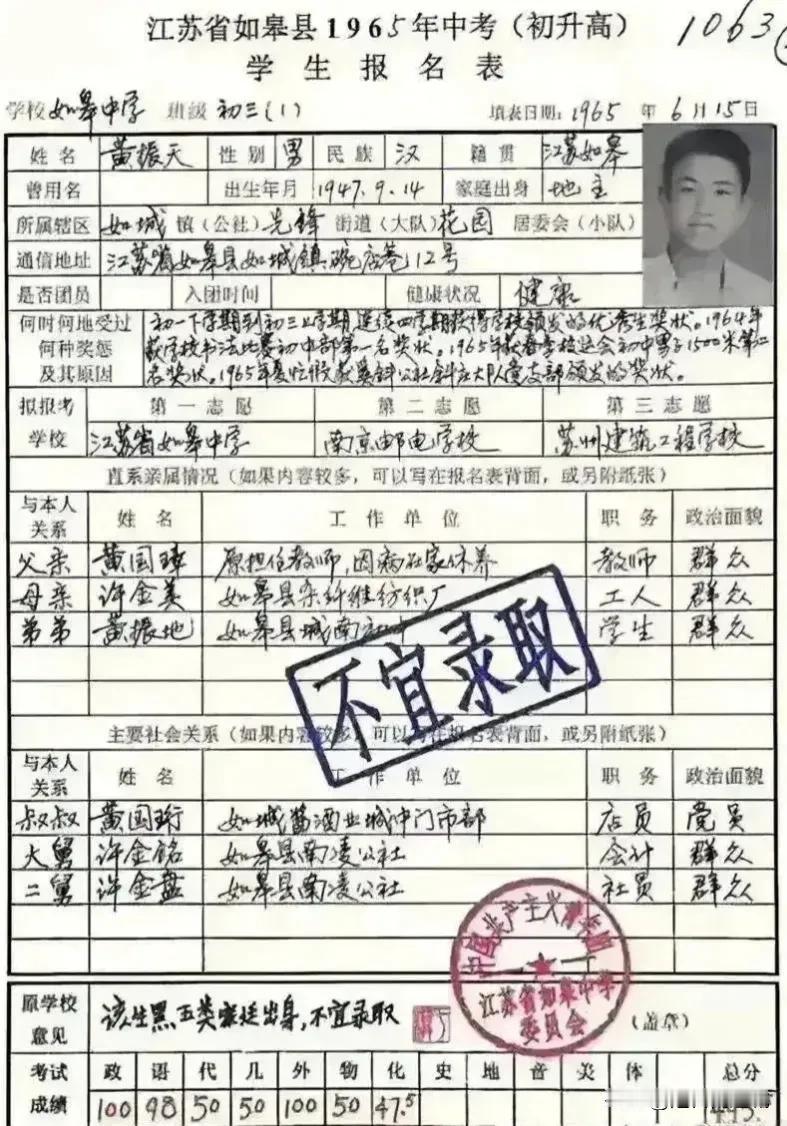 江苏省如皋县1965年中考（初升高） 1063
学生报名表
学校 如皋中学 班级 初三（1） 填表日期：1965 年 6月15日
姓名 黄振天 性别 男 民族 汉 籍贯 江苏如皋
曾用名 出生年月 1947.9.14 家庭出身 地主
所属辖区 如城 镇（公社）先锋 街道（大队）花园 居委会（小队）
通信地址 江苏省如皋县如城镇碗店巷12号
是否团员 入团时间 健康状况 健康
何时何地受过 初一下学期到初三上学期，连续四学期获得学校颁发的优秀生奖状。1964年
何种奖惩 获学校书法比赛初中部第一名奖状。1965年获春季校运会初中男子1500米第二
及其原因 名奖状。1965年夏忙假获 公社 大队党支部颁发的奖状。
拟报考 第一志愿 第二志愿 第三志愿
学校 江苏省如皋中学 南京邮电学校 苏州建筑工程学校
直系亲属情况（如果内容较多，可以写在报名表背面，或另附纸张）
与本人关系 姓名 工作单位 职务 政治面貌
父亲 黄国璋 原担任教师，因病在家休养 教师 群众
母亲 许金美 如皋县杂纤维纺织厂 工人 群众
弟弟 黄振地 如皋县城南 学生 群众
不宜录取
主要社会关系（如果内容较多，可以写在报名表背面，或另附纸张）
与本人关系 姓名 工作单位 职务 政治面貌
叔叔 黄国珩 如城酱酒业城中门市部 店员 党员
大舅 许金铭 如皋县南凌公社 会计 群众
二舅 许金盘 如皋县南凌公社 社员 群众
中国共产主义青年团
江苏省如皋中学
委员会
原学校意见 该生黑五类家庭出身，不宜录取 （盖章）
考试 政 语 代 几 外 物 化 史 地 音 美 体 总分
成绩 100 98 50 50 100 50 47.5